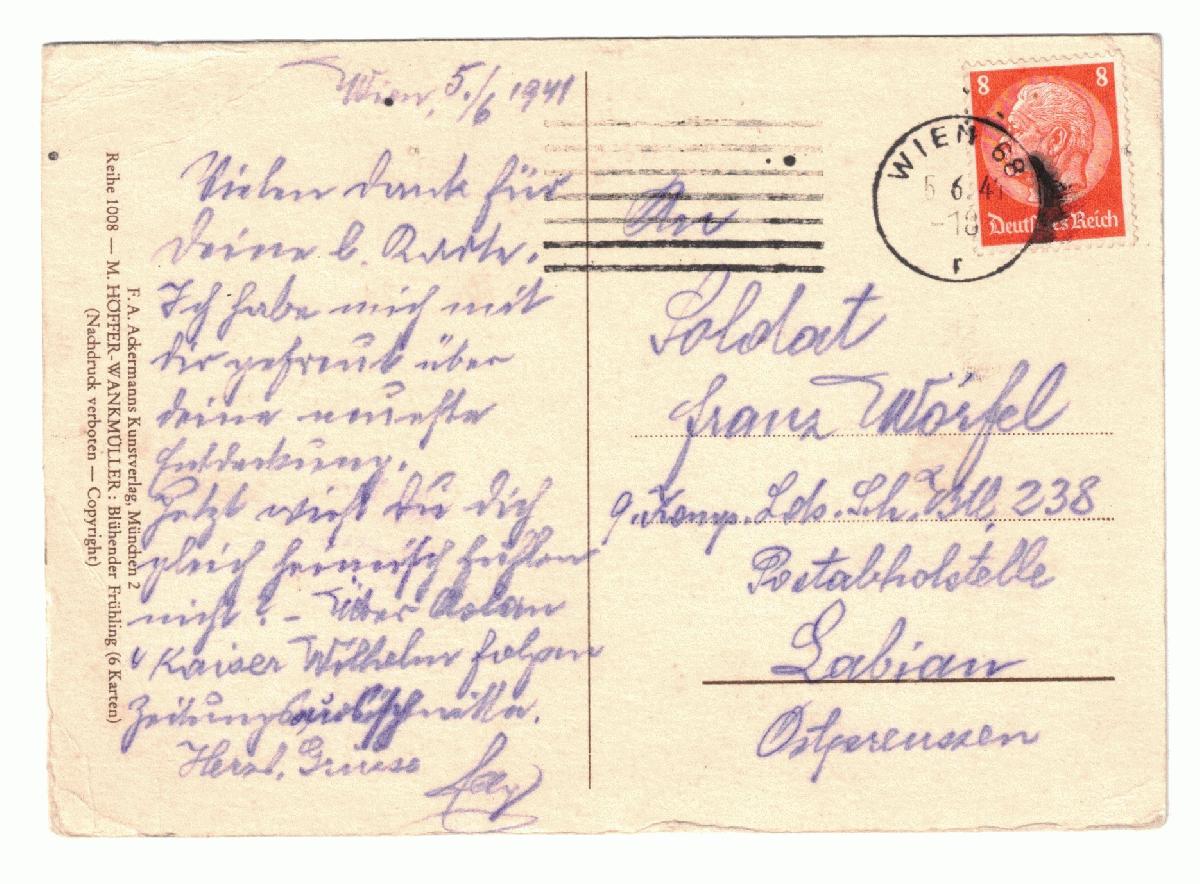 Wien, 5./6 1941
Vielen Dank für
deine l. Karte.
Ich habe mich mit
dir gefreut über
deine neueste
Entdeckung.
Jetzt wirst Du dich
gleich heimisch fühlen
nicht? - Über Aslan
u Kaiser Wilhelm folgen
Zeitungsausschnitte.
Herzl. Grüsse
Reihe 1008 — M. HÖFFER-WANKMÜLLER: Blühender Frühling (6 Karten)
F. A. Ackermanns Kunstverlag, München 2
(Nachdruck verboten — Copyright)
8 8
Deutsches Reich
WIEN 68
5 6 41
-10
r
An
Soldat
Franz Wörfel
9. Komp. Lds. Sch. Btl. 238
Postabholstelle
Labiau
Ostpreussen